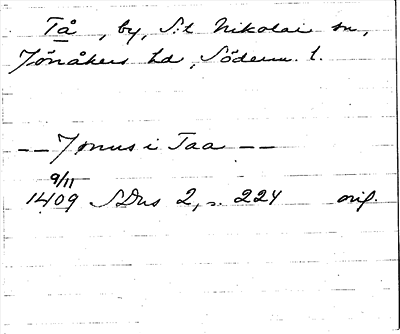 Tå, by, S:t Nikolai sn,
Jönåkers hd, Söderm. l.
-- Jmus i Taa --
9/11
1409 SDns 2, s. 224 orig.